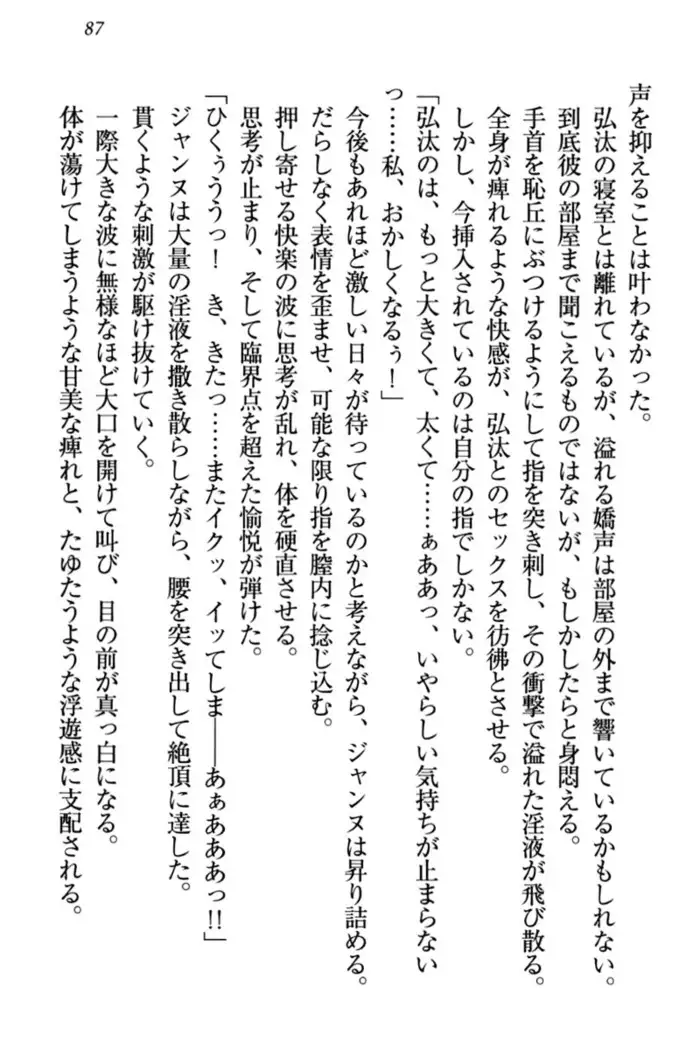 87
声を抑えることは叶わなかった。
弘汰の寝室とは離れているが、溢れる嬌声は部屋の外まで響いているかもしれない。
到底彼の部屋まで聞こえるものではないが、もしかしたらと身悶える。
手首を恥丘にぶつけるようにして指を突き刺し、その衝撃で溢れた淫液が飛び散る。
全身が痺れるような快感が、弘汰とのセックスを彷彿とさせる。
しかし、今挿入されているのは自分の指でしかない。
「弘汰のは、もっと大きくて、太くて……ぁああっ、いやらしい気持ちが止まらない
っ……私、おかしくなるぅ！」
今後もあれほど激しい日々が待っているのかと考えながら、ジャンヌは昇り詰める。
だらしなく表情を歪ませ、可能な限り指を膣内に捻じ込む。
押し寄せる快楽の波に思考が乱れ、体を硬直させる。
思考が止まり、そして臨界点を超えた愉悦が弾けた。
「ひくぅううっ！　き、きたっ……またイクッ、イッてしま――あぁあああっ!!」
ジャンヌは大量の淫液を撒き散らしながら、腰を突き出して絶頂に達した。
貫くような刺激が駆け抜けていく。
一際大きな波に無様なほど大口を開けて叫び、目の前が真っ白になる。
体が蕩けてしまうような甘美な痺れと、たゆたうような浮遊感に支配される。